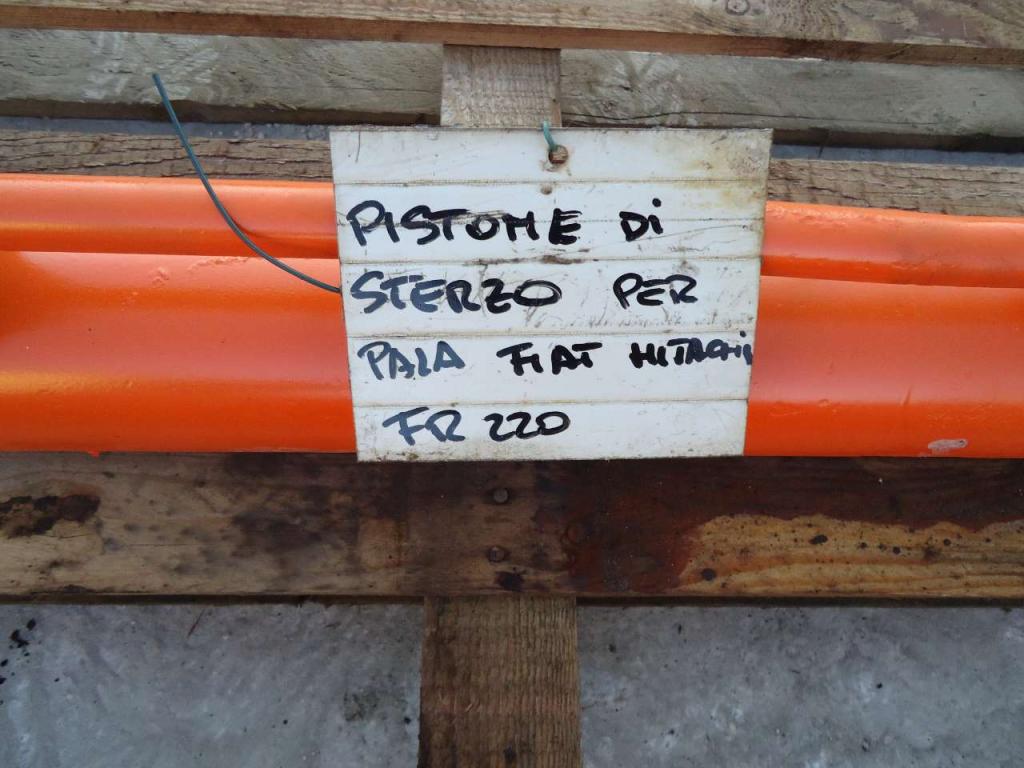 PISTONE Di
STERZO PER
PALA FIAT HITACHi
FR 220